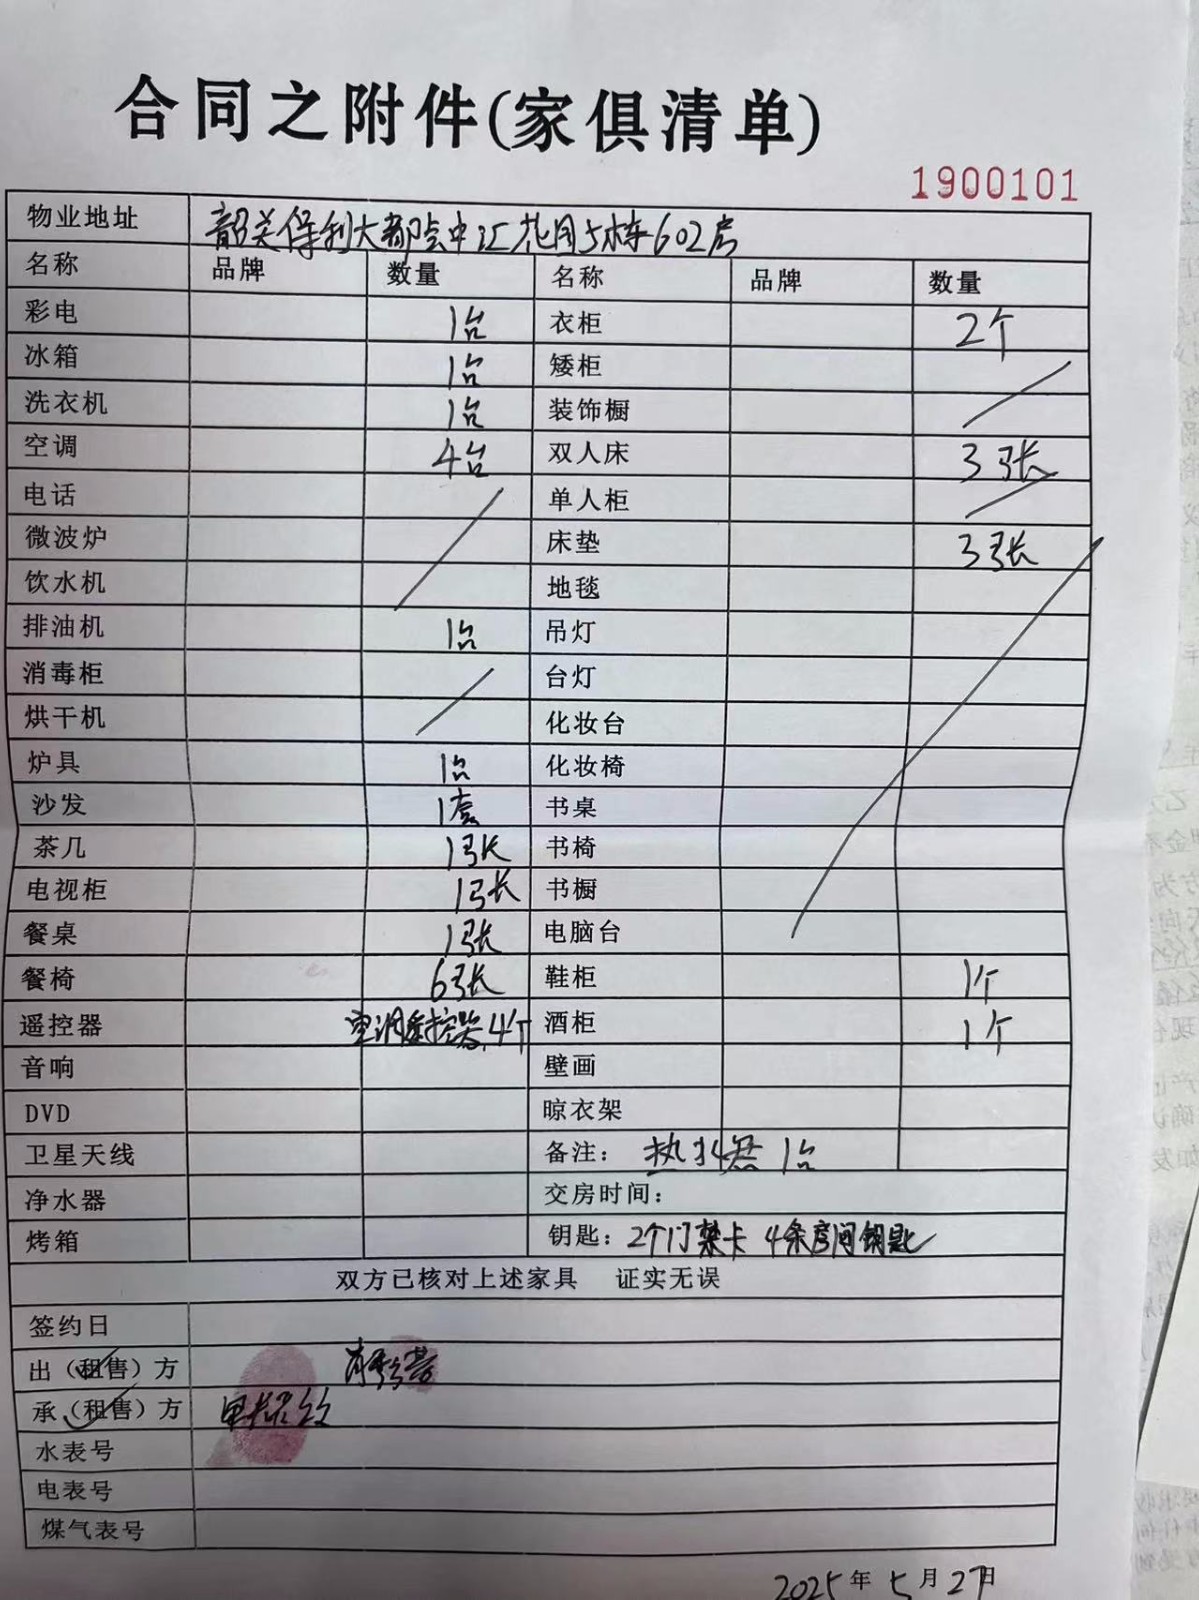 合同之附件(家俱清单)
1900101
物业地址 韶关保利大都会中汇花园5栋602房
名称 品牌 数量 名称 品牌 数量
彩电 1台 衣柜 2个
冰箱 1台 矮柜
洗衣机 1台 装饰橱
空调 4台 双人床 3张
电话 单人柜
微波炉 床垫 3张
饮水机 地毯
排油机 1台 吊灯
消毒柜 台灯
烘干机 化妆台
炉具 1台 化妆椅
沙发 1套 书桌
茶几 1张 书椅
电视柜 1张 书橱
餐桌 1张 电脑台
餐椅 6张 鞋柜 1个
遥控器 空调遥控器4个 酒柜 1个
音响 壁画
DVD 晾衣架
卫星天线 备注：热水器 1台
净水器 交房时间：
烤箱 钥匙：2个门禁卡 4条房间钥匙
双方已核对上述家具 证实无误
签约日
出（租售）方
承（租售）方
水表号
电表号
煤气表号
2025年5月27日